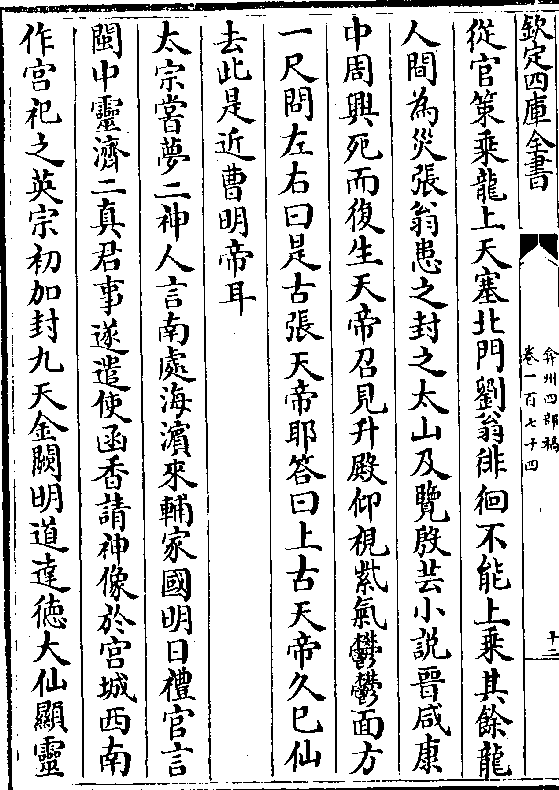 欽定四庫全書
弇州四部稿
卷一百七十四
十二
從官策乘龍上天塞北門劉翁徘徊不能上乘其餘龍
人間為災張翁患之封之太山及覽殷芸小說晉咸康
中周興死而復生天帝召見升殿仰視紫氣鬱鬱面方
一尺問左右曰是古張天帝耶答曰上古天帝久已仙
去此是近曹明帝耳
太宗嘗夢二神人言南處海濱來輔家國明日禮官言
閩中靈濟二真君事遂遣使函香請神像於宮城西南
作宮祀之英宗初加封九天金闕明道達徳大仙顯靈